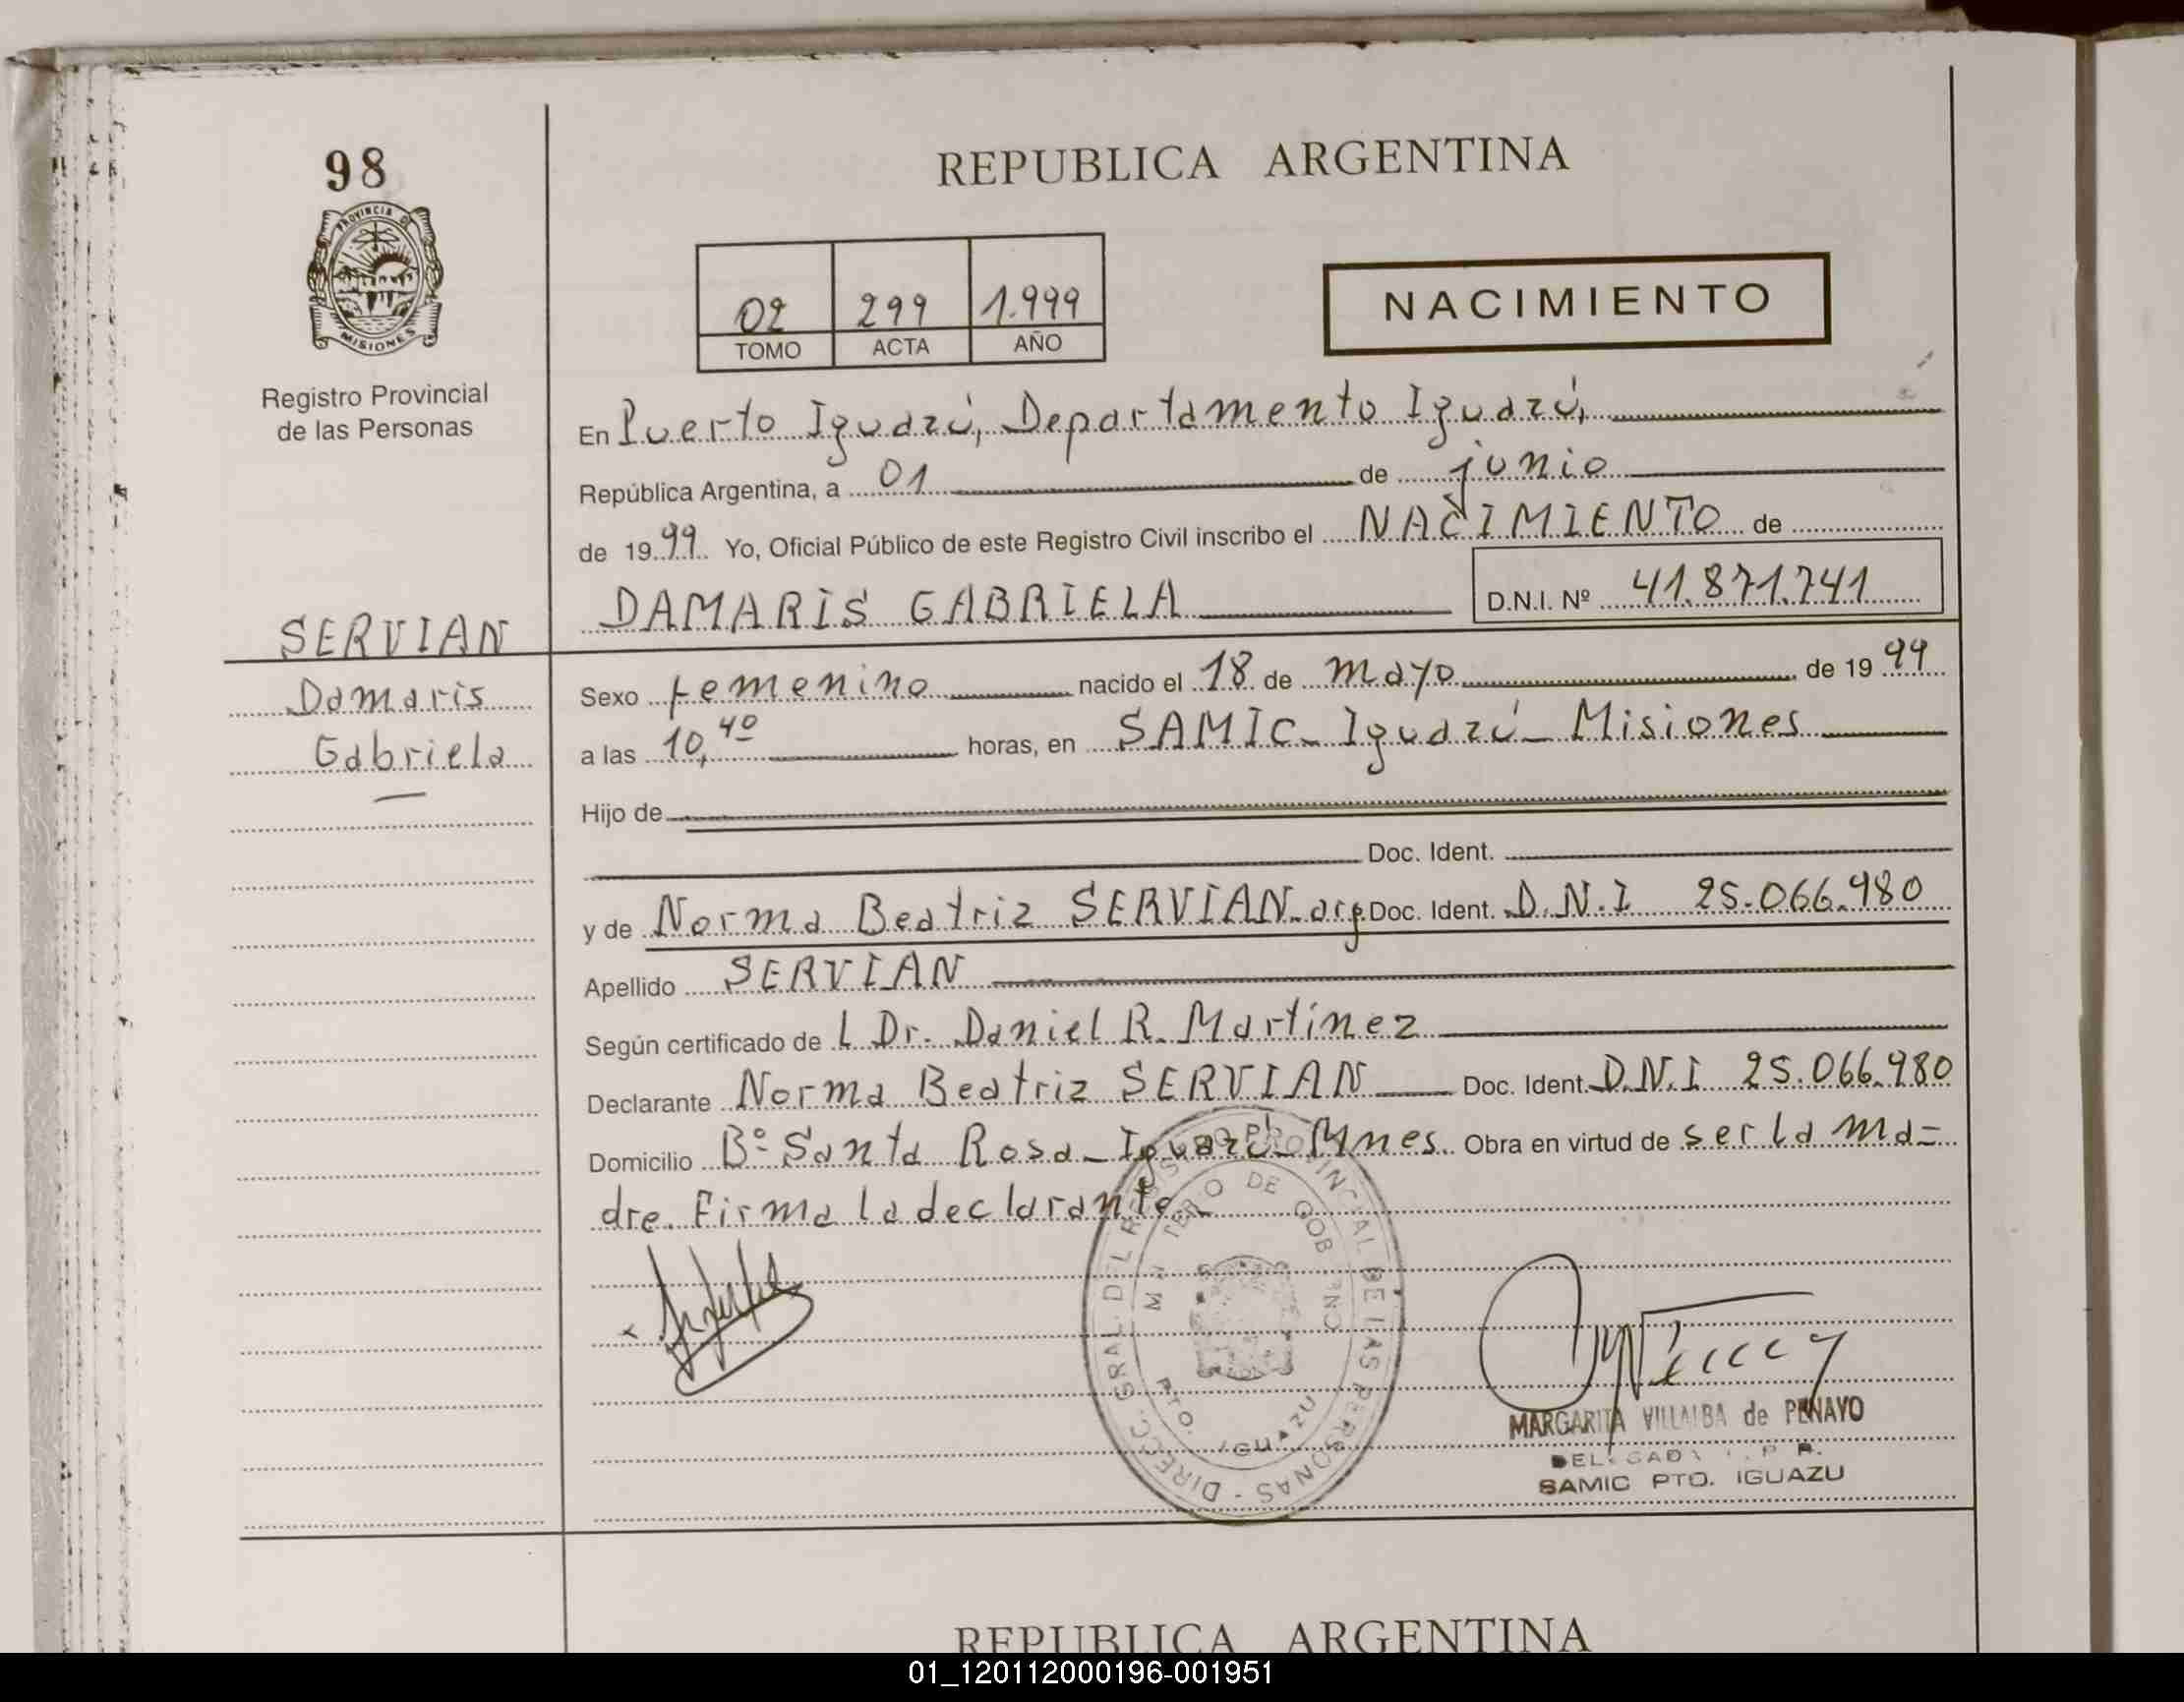 98
PROVINCIA DE
MISIONES
Registro Provincial
de las Personas
SERVIAN
Damaris
Gabriela
REPUBLICA ARGENTINA
02 299 1.999
TOMO ACTA AÑO
NACIMIENTO
En Puerto Iguazú, Departamento Iguazú,
República Argentina, a 01 de junio
de 1999 Yo, Oficial Público de este Registro Civil inscribo el NACIMIENTO de
DAMARIS GABRIELA D.N.I. Nº 41.871.741
Sexo femenino nacido el 18 de mayo de 1999
a las 10,40 horas, en SAMIC_ Iguazú_ Misiones
Hijo de
Doc. Ident.
y de Norma Beatriz SERVIAN_arg Doc. Ident. D.N.I 25.066.980
Apellido SERVIAN
Según certificado de L Dr. Daniel R. Martínez
Declarante Norma Beatriz SERVIAN Doc. Ident. D.N.I 25.066.980
Domicilio Bº Santa Rosa_ Iguazú_ Mnes. Obra en virtud de ser la ma=
dre. Firma la declarante_
DIRECC. GRAL. DEL REGISTRO PROVINCIAL DE LAS PERSONAS -
MINISTERIO DE GOBIERNO
PTO. IGUAZU
x
MARGARITA VILLALBA de PENAYO
SAMIC PTO. IGUAZU
REPUBLICA ARGENTINA
01_120112000196-001951